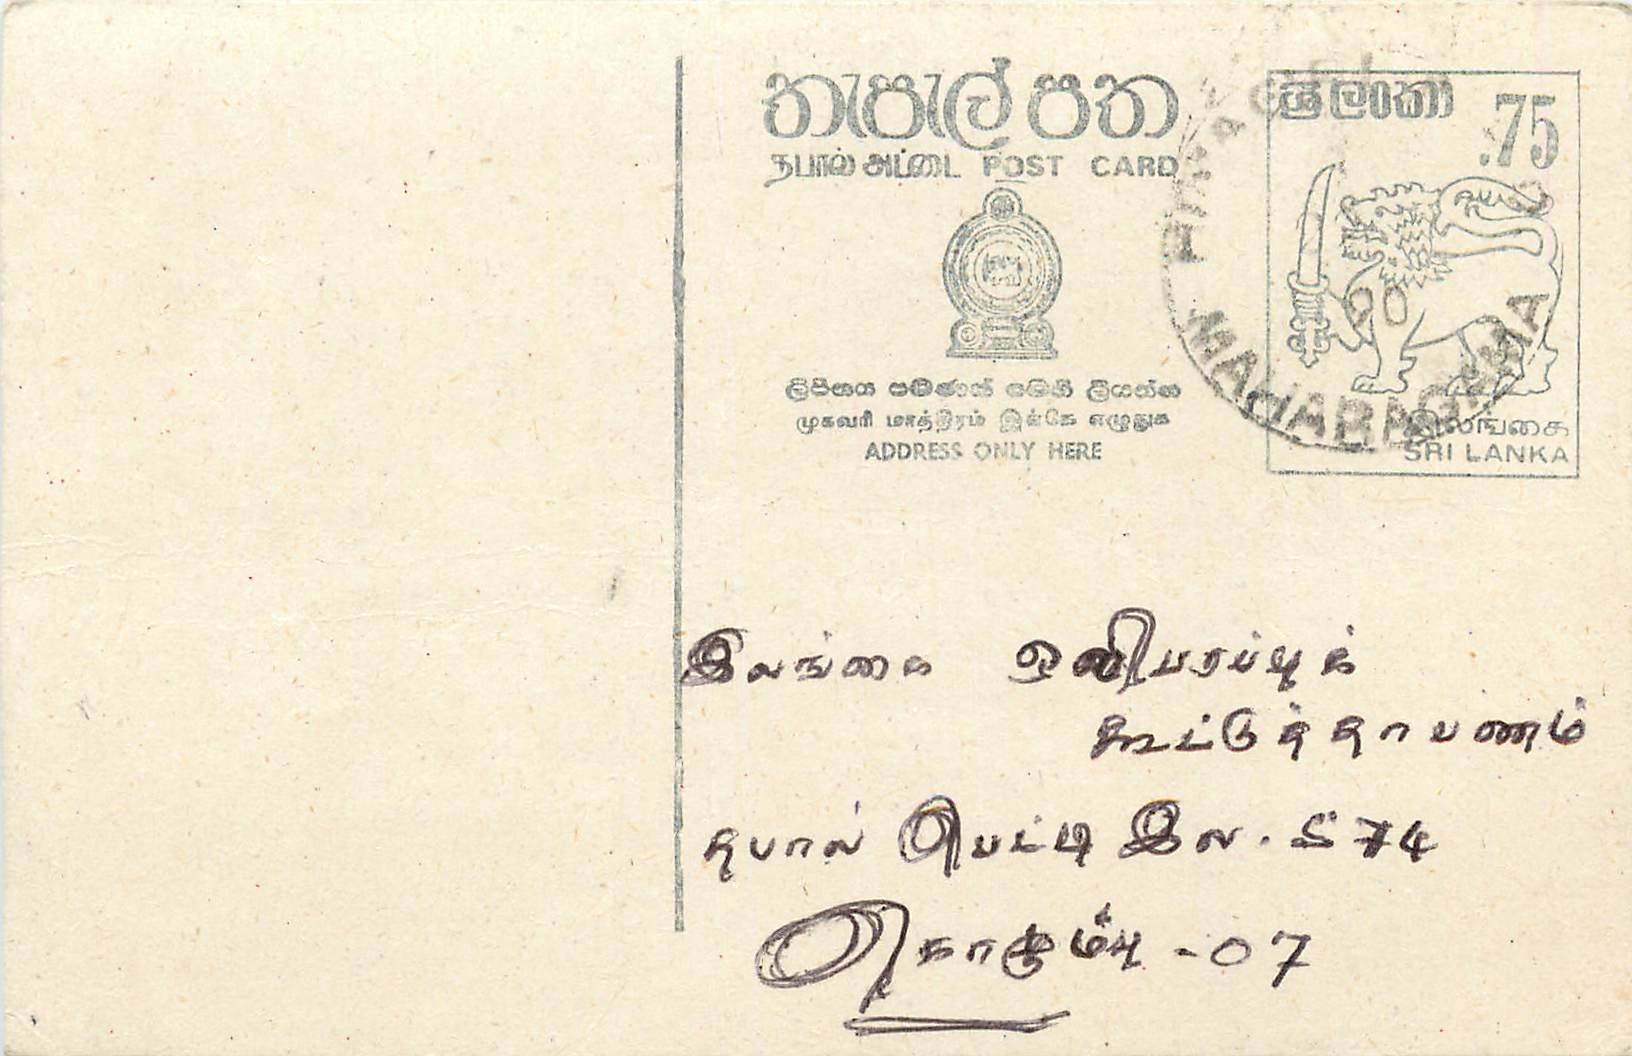 තැපැල් පත
தபால் அட்டை POST CARD
ශ්‍රී ලංකා
.75
ලිපිනය පමණක් මෙහි ලියන්න
முகவரி மாத்திரம் இங்கே எழுதுக
ADDRESS ONLY HERE
இலங்கை
SRI LANKA
MAHARAGAMA
இலங்கை ஒலிபரப்புக்
கூட்டுத்தாபணம்
தபால் பெட்டி இல. 574
கொழும்பு - 07